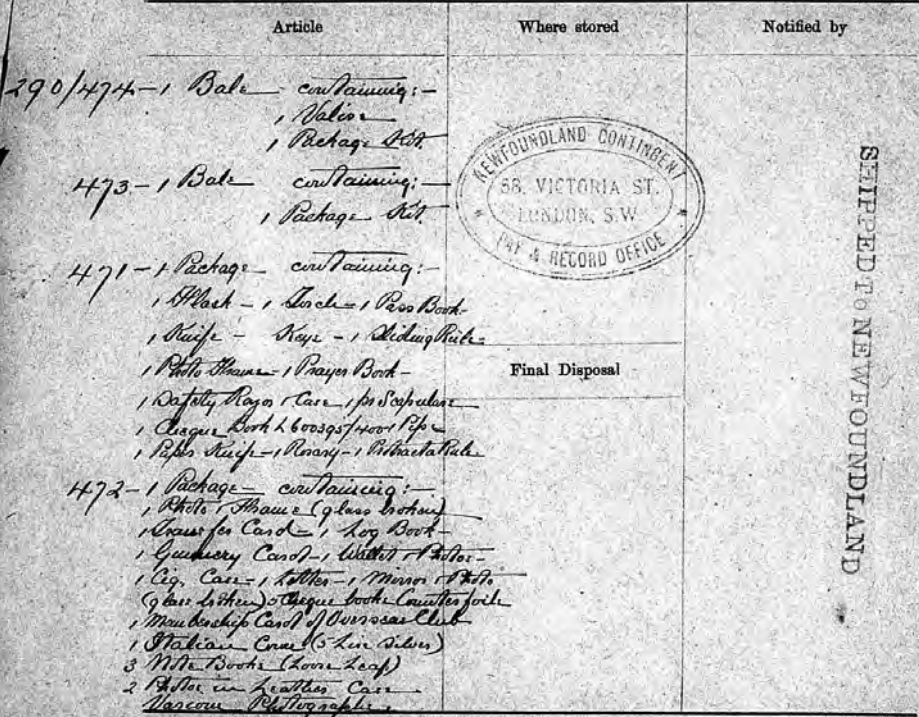 Article
Where stored
Notified by
290/474 - 1 Bale containing: -
1 Valise
1 Package Kit.
473 - 1 Bale containing: -
1 Package Kit.
471 - 1 Package containing: -
1 Flask - 1 Torch - 1 Pass Book -
1 Knife - Keys - 1 Sliding Rule -
1 Photo Frame - 1 Prayer Book -
1 Safety Razor & Case 1 pr Scapulars
1 Cheque Book L600395/400 1 Pipe
1 Paper Knife - 1 Rosary - 1 Protractor Rule
472 - 1 Package containing: -
1 Photo & Frame (glass broken)
1 Transfer Card - 1 Log Book -
1 Gunnery Card - 1 Wallet & Photos -
1 Cig. Case - 1 Letter - 1 Mirror & Photo
(glass broken) 5 Cheque books Counterfoils
1 Membership Card of Overseas Club
1 Italian Coin (5 Lire Silver)
3 Note Books (Loose Leaf)
2 Photos in Leather Case
Various Photographs.
NEWFOUNDLAND CONTINGENT
58, VICTORIA ST.
LONDON, S.W.
PAY & RECORD OFFICE
Final Disposal
SHIPPED TO NEWFOUNDLAND